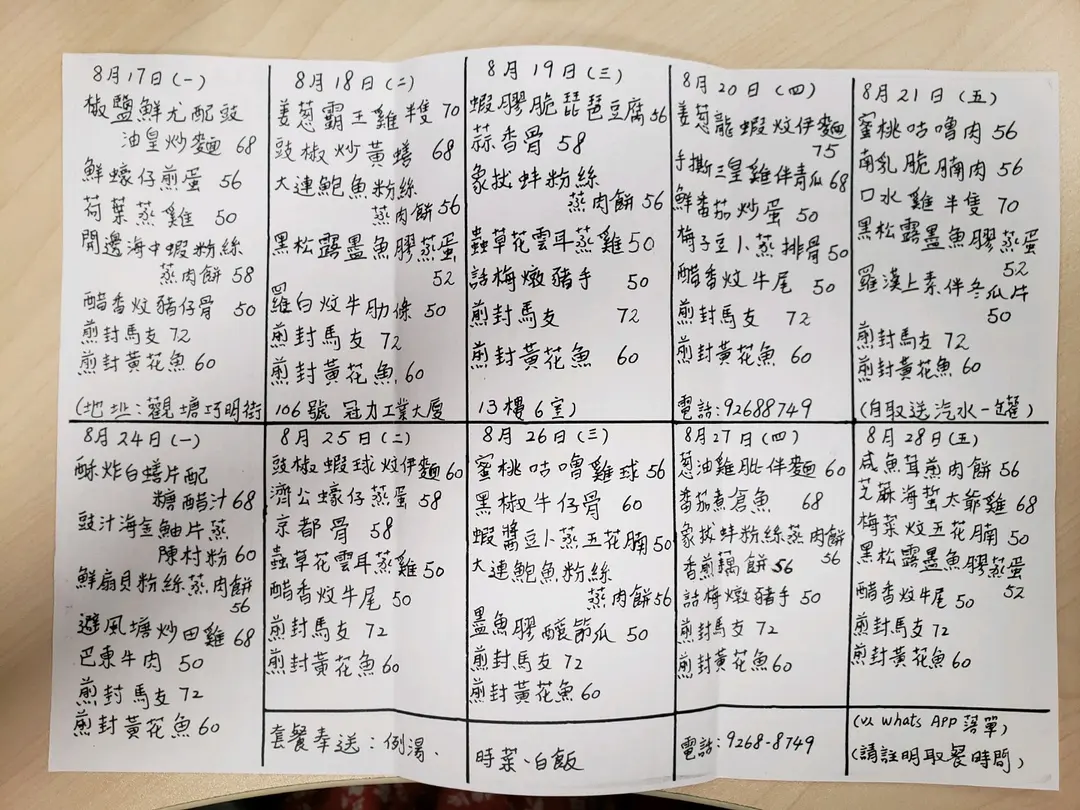 8月17日(一)
椒鹽鮮尤配豉
油皇炒麵 68
鮮蠔仔煎蛋 56
荷葉蒸雞 50
開邊海中蝦粉絲
蒸肉餅 58
醋香炆豬仔骨 50
煎封馬友 72
煎封黃花魚 60
8月18日(二)
姜葱霸王雞半隻 70
豉椒炒黃鱔 68
大連鮑魚粉絲
蒸肉餅 56
黑松露墨魚膠蒸蛋
52
羅白炆牛肋條 50
煎封馬友 72
煎封黃花魚 60
8月19日(三)
蝦膠脆琵琶豆腐 56
蒜香骨 58
象拔蚌粉絲
蒸肉餅 56
蟲草花雲耳蒸雞 50
話梅燉豬手 50
煎封馬友 72
煎封黃花魚 60
8月20日(四)
姜葱龍蝦炆伊麵
75
手撕三皇雞伴青瓜 68
鮮番茄炒蛋 50
梅子豆卜蒸排骨 50
醋香炆牛尾 50
煎封馬友 72
煎封黃花魚 60
8月21日(五)
蜜桃咕嚕肉 56
南乳脆腩肉 56
口水雞半隻 70
黑松露墨魚膠蒸蛋
52
羅漢上素伴冬瓜片
50
煎封馬友 72
煎封黃花魚 60
(地址:觀塘巧明街 106號 冠力工業大廈 13樓6室)
電話:92688749
(自取送汽水一罐)
8月24日(一)
酥炸白鱔片配
糖醋汁 68
豉汁海金鮋片蒸
陳村粉 60
鮮扇貝粉絲蒸肉餅
56
避風塘炒田雞 68
巴東牛肉 50
煎封馬友 72
煎封黃花魚 60
8月25日(二)
豉椒蝦球炆伊麵 60
濟公蠔仔蒸蛋 58
京都骨 58
蟲草花雲耳蒸雞 50
醋香炆牛尾 50
煎封馬友 72
煎封黃花魚 60
8月26日(三)
蜜桃咕嚕雞球 56
黑椒牛仔骨 60
蝦醬豆卜蒸五花腩 50
大連鮑魚粉絲
蒸肉餅 56
墨魚膠釀節瓜 50
煎封馬友 72
煎封黃花魚 60
8月27日(四)
葱油雞肶伴麵 60
番茄煮倉魚 68
象拔蚌粉絲蒸肉餅
56
香煎藕餅 56
話梅燉豬手 50
煎封馬友 72
煎封黃花魚 60
8月28日(五)
咸魚茸煎肉餅 56
芝麻海蜇太爺雞 68
梅菜炆五花腩 50
黑松露墨魚膠蒸蛋
52
醋香炆牛尾 50
煎封馬友 72
煎封黃花魚 60
套餐奉送:例湯、時菜、白飯
電話:9268-8749
(以 Whats APP 落單)
(請註明取餐時間)